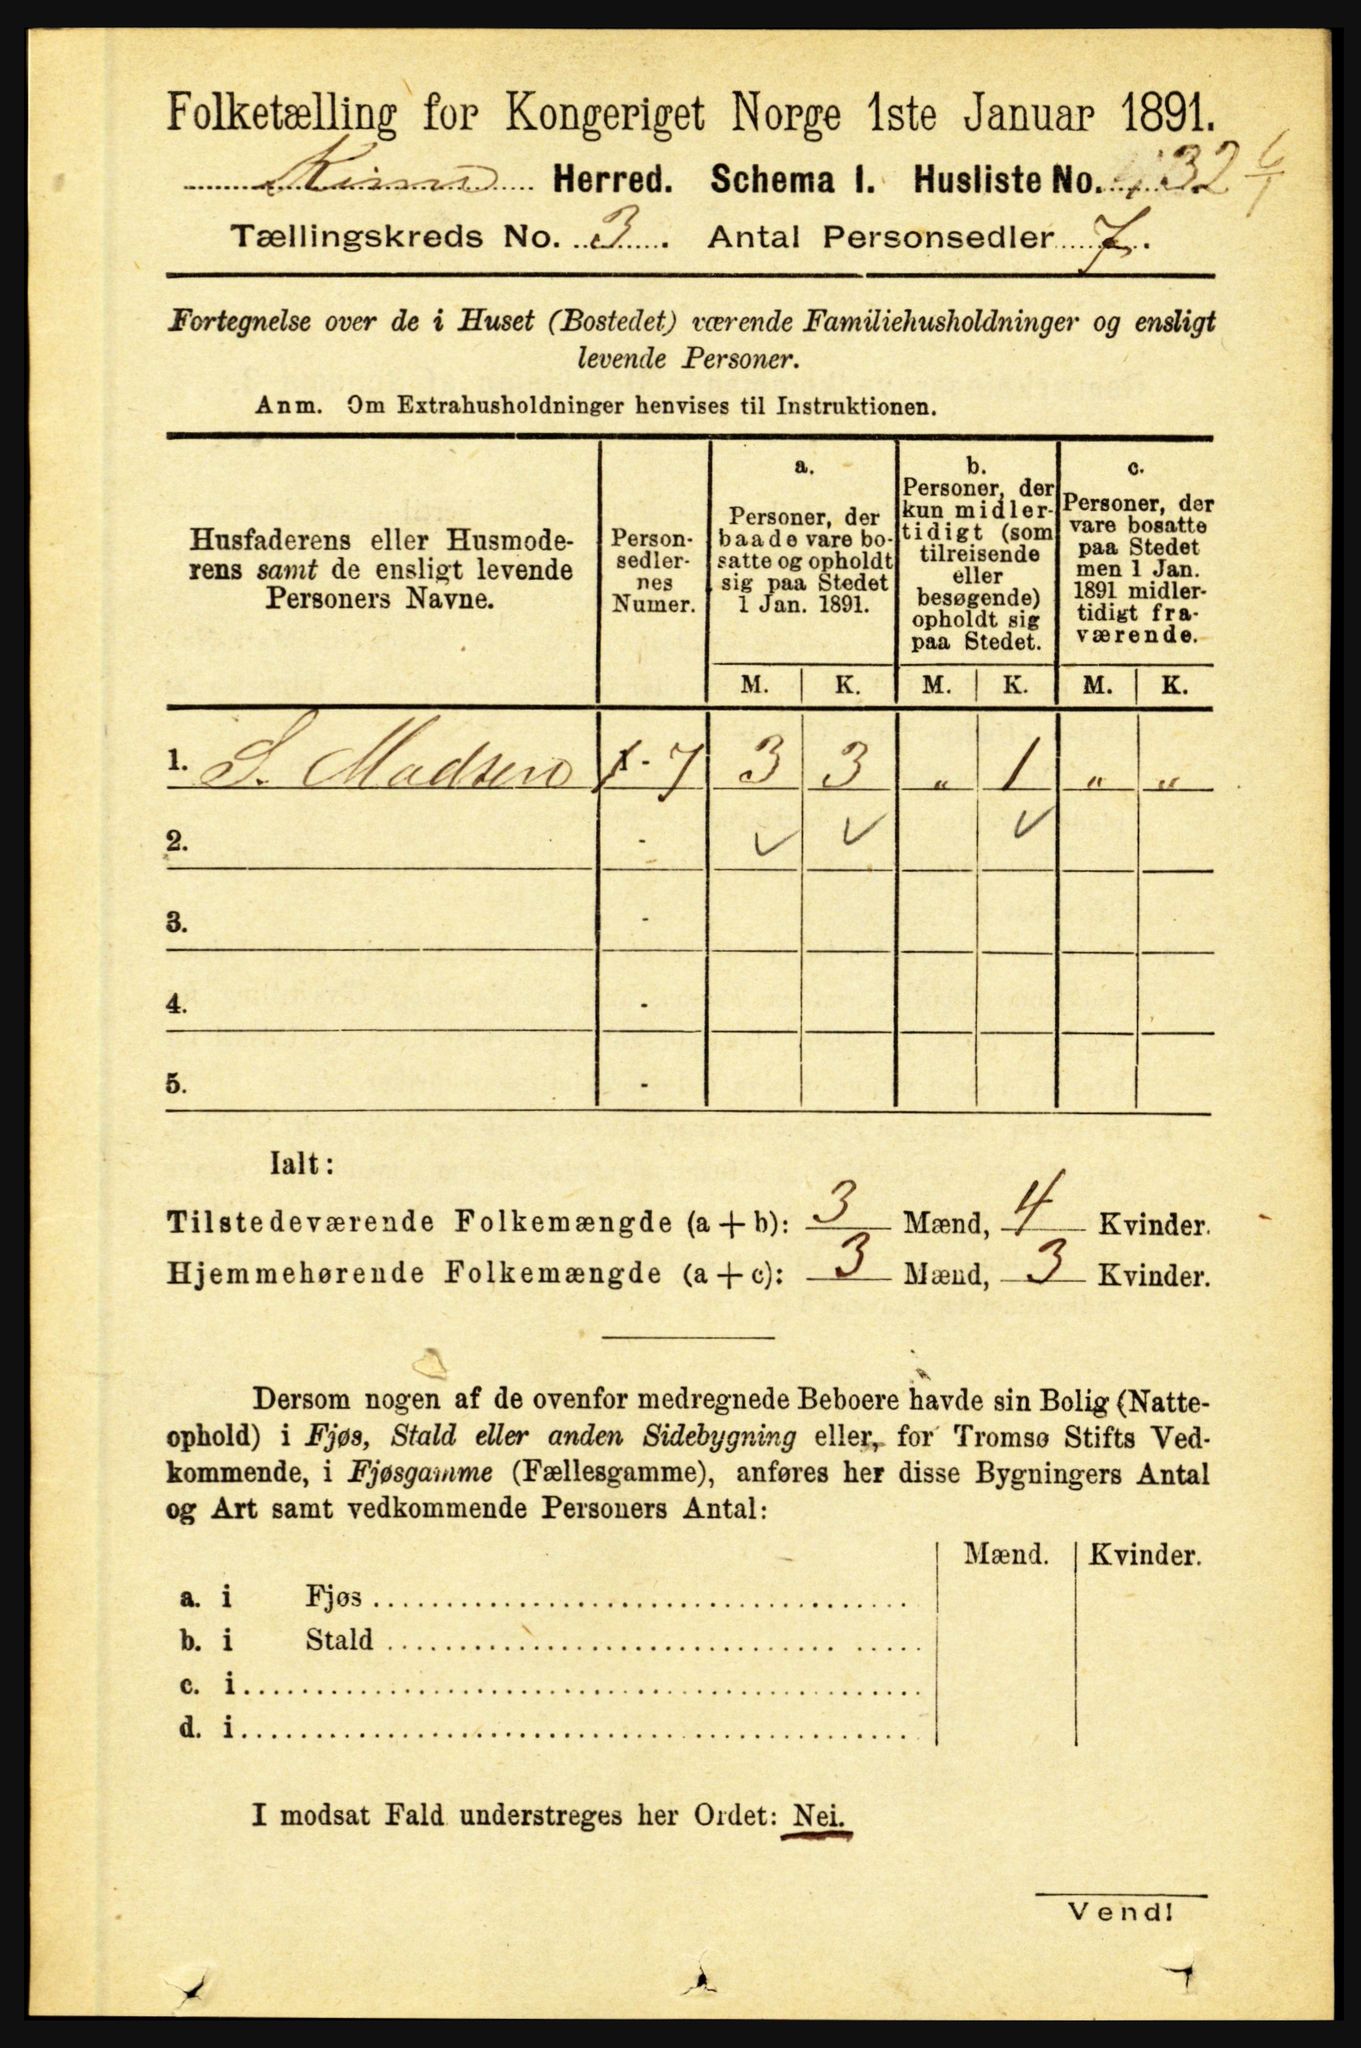 Folketælling for Kongeriget Norge 1ste Januar 1891.
Kinn Herred. Schema I. Husliste No. 32 6/1
Tællingskreds No. 3. Antal Personsedler 7.
Fortegnelse over de i Huset (Bostedet) værende Familiehusholdninger og ensligt
levende Personer.
Anm. Om Extrahusholdninger henvises til Instruktionen.
Husfaderens eller Husmode-
rens samt de ensligt levende
Personers Navne.
Person-
sedler-
nes
Numer.
a.
Personer, der
baade vare bo-
satte og opholdt
sig paa Stedet
1 Jan. 1891.
b.
Personer, der
kun midler-
tidigt (som
tilreisende
eller
besøgende)
opholdt sig
paa Stedet.
c.
Personer, der
vare bosatte
paa Stedet
men 1 Jan.
1891 midler-
tidigt fra-
værende.
M. K. M. K. M. K.
1. S. Madsen 1-7 3 3 „ 1 „ „
2. - ✓ ✓ ✓
3. -
4. -
5. -
Ialt:
Tilstedeværende Folkemængde (a + b): 3 Mænd, 4 Kvinder.
Hjemmehørende Folkemængde (a + c): 3 Mænd, 3 Kvinder.
Dersom nogen af de ovenfor medregnede Beboere havde sin Bolig (Natte-
ophold) i Fjøs, Stald eller anden Sidebygning eller, for Tromsø Stifts Ved-
kommende, i Fjøsgamme (Fællesgamme), anføres her disse Bygningers Antal
og Art samt vedkommende Personers Antal:
Mænd. Kvinder.
a. i Fjøs
b. i Stald
c. i
d. i
I modsat Fald understreges her Ordet: Nei.
Vend!